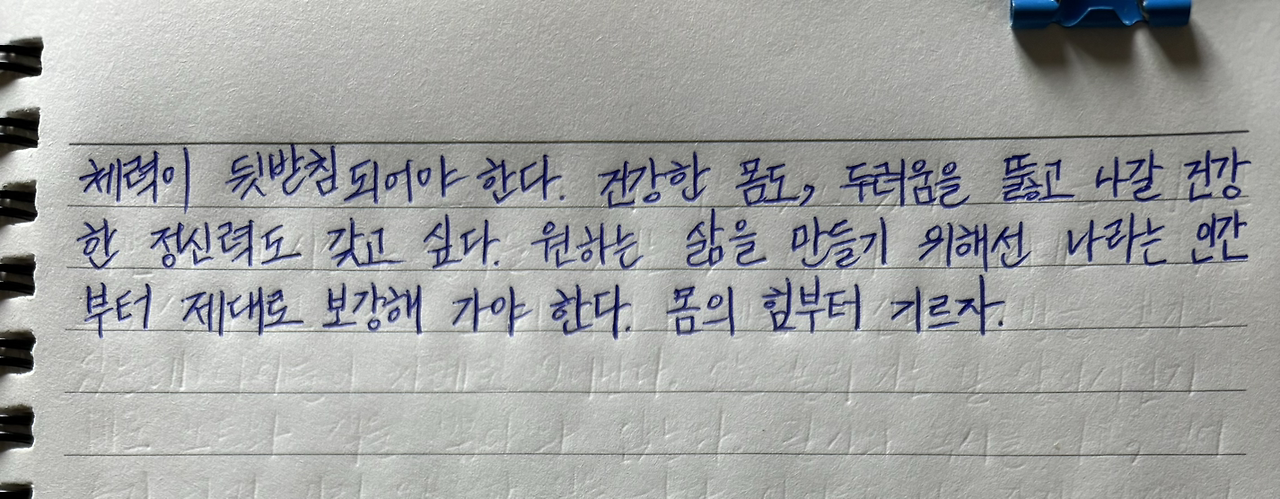 체력이 뒷받침 되어야 한다. 건강한 몸도, 두려움을 뚫고 나갈 건강
한 정신력도 갖고 싶다. 원하는 삶을 만들기 위해선 나라는 인간
부터 제대로 보강해 가야 한다. 몸의 힘부터 기르자.